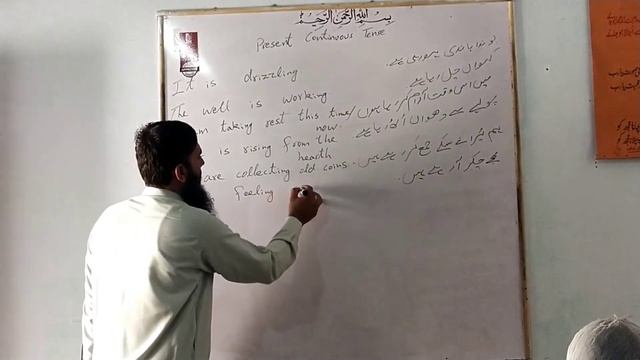 بِسْمِ اللهِ الرَّحْمٰنِ الرَّحِيْمِ
Present Continuous Tense
It is drizzling
بوندا باندی ہو رہی ہے۔
The well is working
کنواں چل رہا ہے
am taking rest this time/now.
میں اس وقت آرام کر رہا ہوں
is rising from the hearth
چولہے سے دھواں اُٹھ رہا ہے
are collecting old coins.
ہم پرانے سکے جمع کر رہے ہیں۔
feeling
مجھے چکر آ رہے ہیں۔